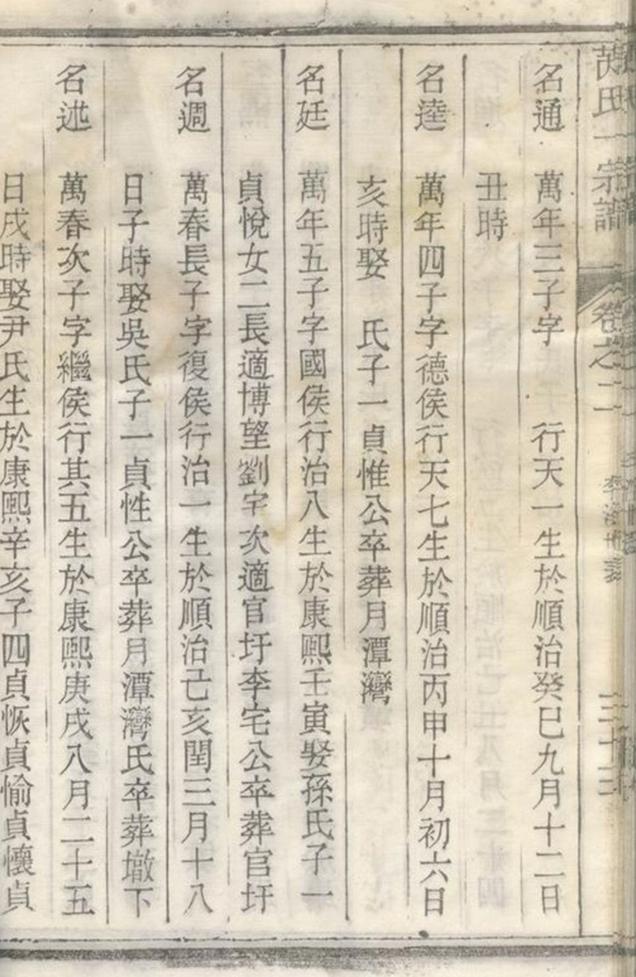 氏宗譜 卷之二
名通 萬年三子字 行天一生於順治癸巳九月十二日
丑時
名逵 萬年四子字德侯行天七生於順治丙申十月初六日
亥時娶 氏子一貞惟公卒葬月潭灣
名廷 萬年五子字國侯行治八生於康熙壬寅娶孫氏子一
貞悅女二長適博望劉宅次適官圩李宅公卒葬官圩
名週 萬春長子字復侯行治一生於順治己亥閏三月十八
日子時娶吳氏子一貞性公卒葬月潭灣氏卒葬墩下
名述 萬春次子字繼侯行其五生於康熙庚戌八月二十五
日戌時娶尹氏生於康熙辛亥子四貞恢貞愉貞懷貞